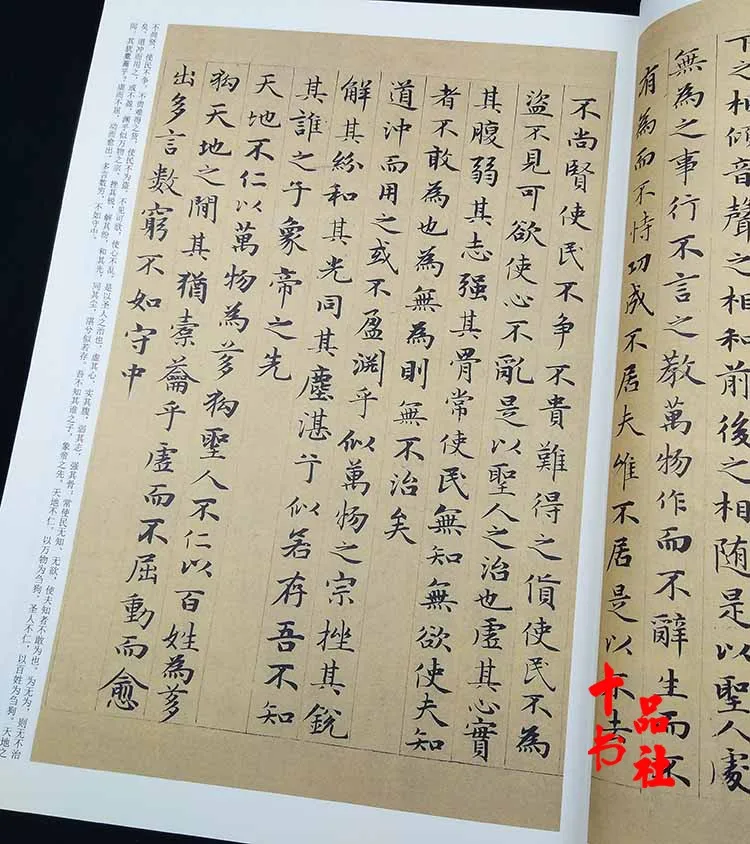 下之相傾音聲之相和前後之相随是以聖人處
無為之事行不言之教萬物作而不辭生而不
有為而不恃功成不居夫唯不居是以不去
不尚賢使民不争不貴難得之貨使民不為
盜不見可欲使心不亂是以聖人之治也虛其心實
其腹弱其志强其骨常使民無知無欲使夫知
者不敢為也為無為則無不治矣
道沖而用之或不盈渊乎似萬物之宗挫其銳
解其紛和其光同其塵湛兮似若存吾不知
其誰之子象帝之先
天地不仁以萬物為芻狗聖人不仁以百姓為芻
狗天地之間其猶橐籥乎虛而不屈動而愈
出多言數窮不如守中
不尚贤，使民不争，不贵难得之货，使民不为盗，不见可欲，使心不乱，是以圣人之治也，虚其心，实其腹，弱其志，强其骨；常使民无知、无欲，使夫知者不敢为也，为无为，则无不治
矣。道冲而用之，或不盈，渊乎似万物之宗。挫其锐，解其纷，和其光，同其尘，湛兮似若存。吾不知其谁之子，象帝之先。天地不仁，以万物为刍狗，圣人不仁，以百姓为刍狗。天地之
间，其犹橐籥乎？虚而不屈，动而愈出，多言数穷，不如守中。
十品
书社